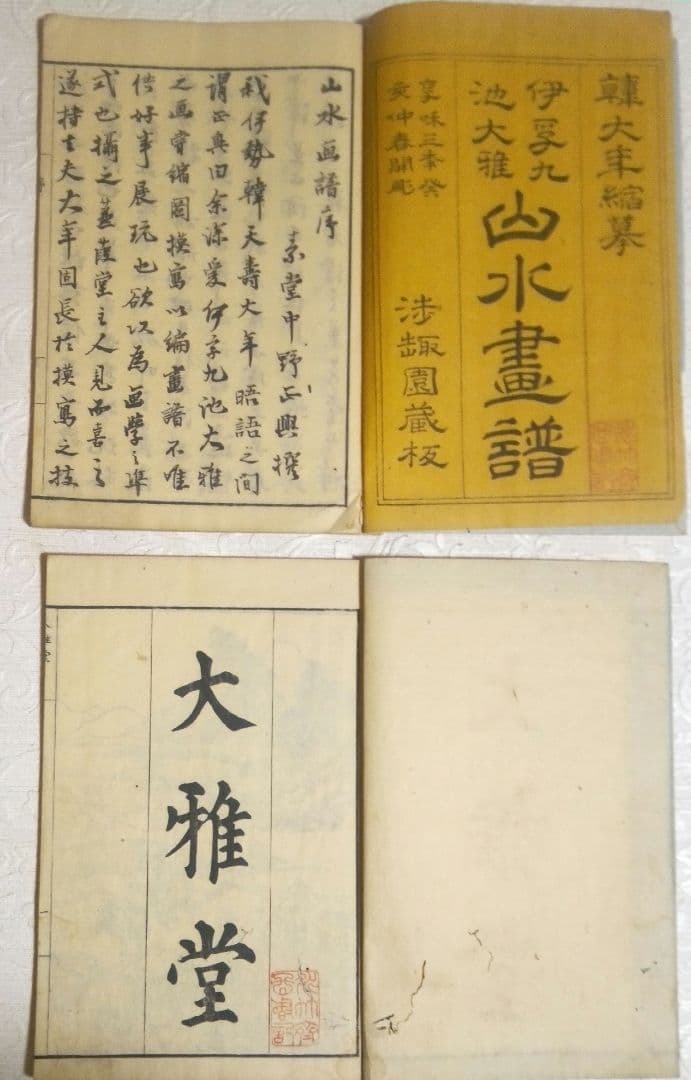 韓大年縮摹
伊孚九
池大雅
山水畫譜
享咊三年癸
亥仲春開彫
渉趣園蔵板
山水画譜序
素堂中野正興撰
我伊勢韓天壽大年晤語之間
謂正興曰余深愛伊孚九池大雅
之画常縮図摸寫以編畫譜不唯
供好事展玩也欲以為画學之準
式也攝之蒹葭堂主人見而喜之
遂持去夫大年固長於摸寫之技
大雅堂